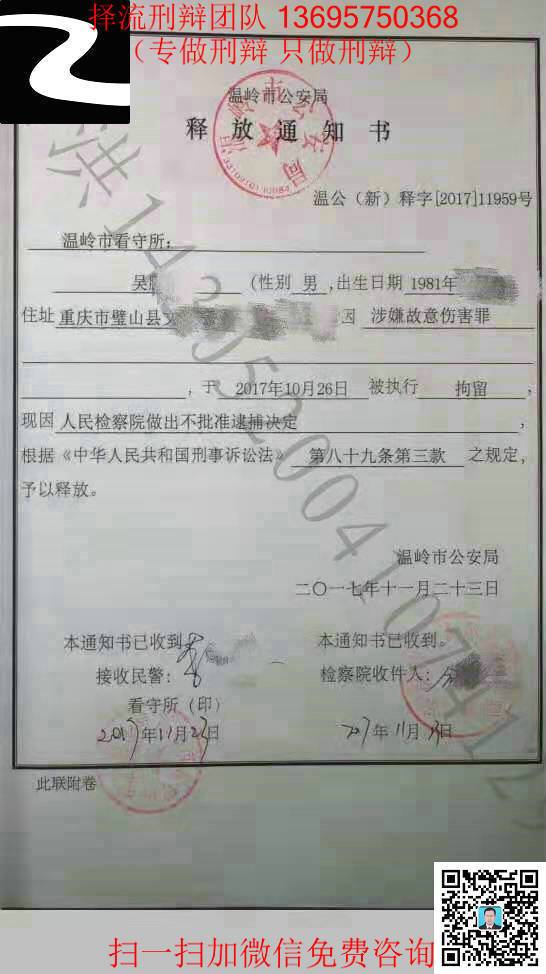 择流刑辩团队 13695750368
（专做刑辩 只做刑辩）
温岭市公安局
释放通知书
温公（新）释字[2017]11959号
温岭市看守所：
吴 (性别 男 ,出生日期 1981年
住址 重庆市璧山县 因 涉嫌故意伤害罪
, 于 2017年10月26日 被执行 拘留 ,
现因 人民检察院做出不批准逮捕决定 ,
根据《中华人民共和国刑事诉讼法》 第八十九条第三款 之规定,
予以释放。
温岭市公安局
二〇一七年十一月二十三日
本通知书已收到 本通知书已收到。
接收民警： 检察院收件人：
看守所（印）
2017年11月23日 2017年11月 日
此联附卷
扫一扫加微信免费咨询